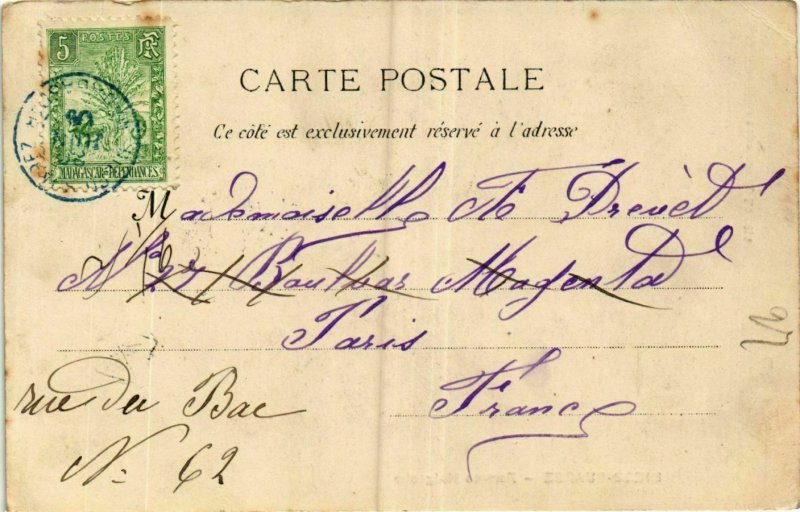 5 POSTES
MADAGASCAR ET DÉPENDANCES
CARTE POSTALE
Ce côté est exclusivement réservé à l'adresse
Mademoiselle Prevèt
Boulvar Magenta
Paris
France
rue du Bac
No 62